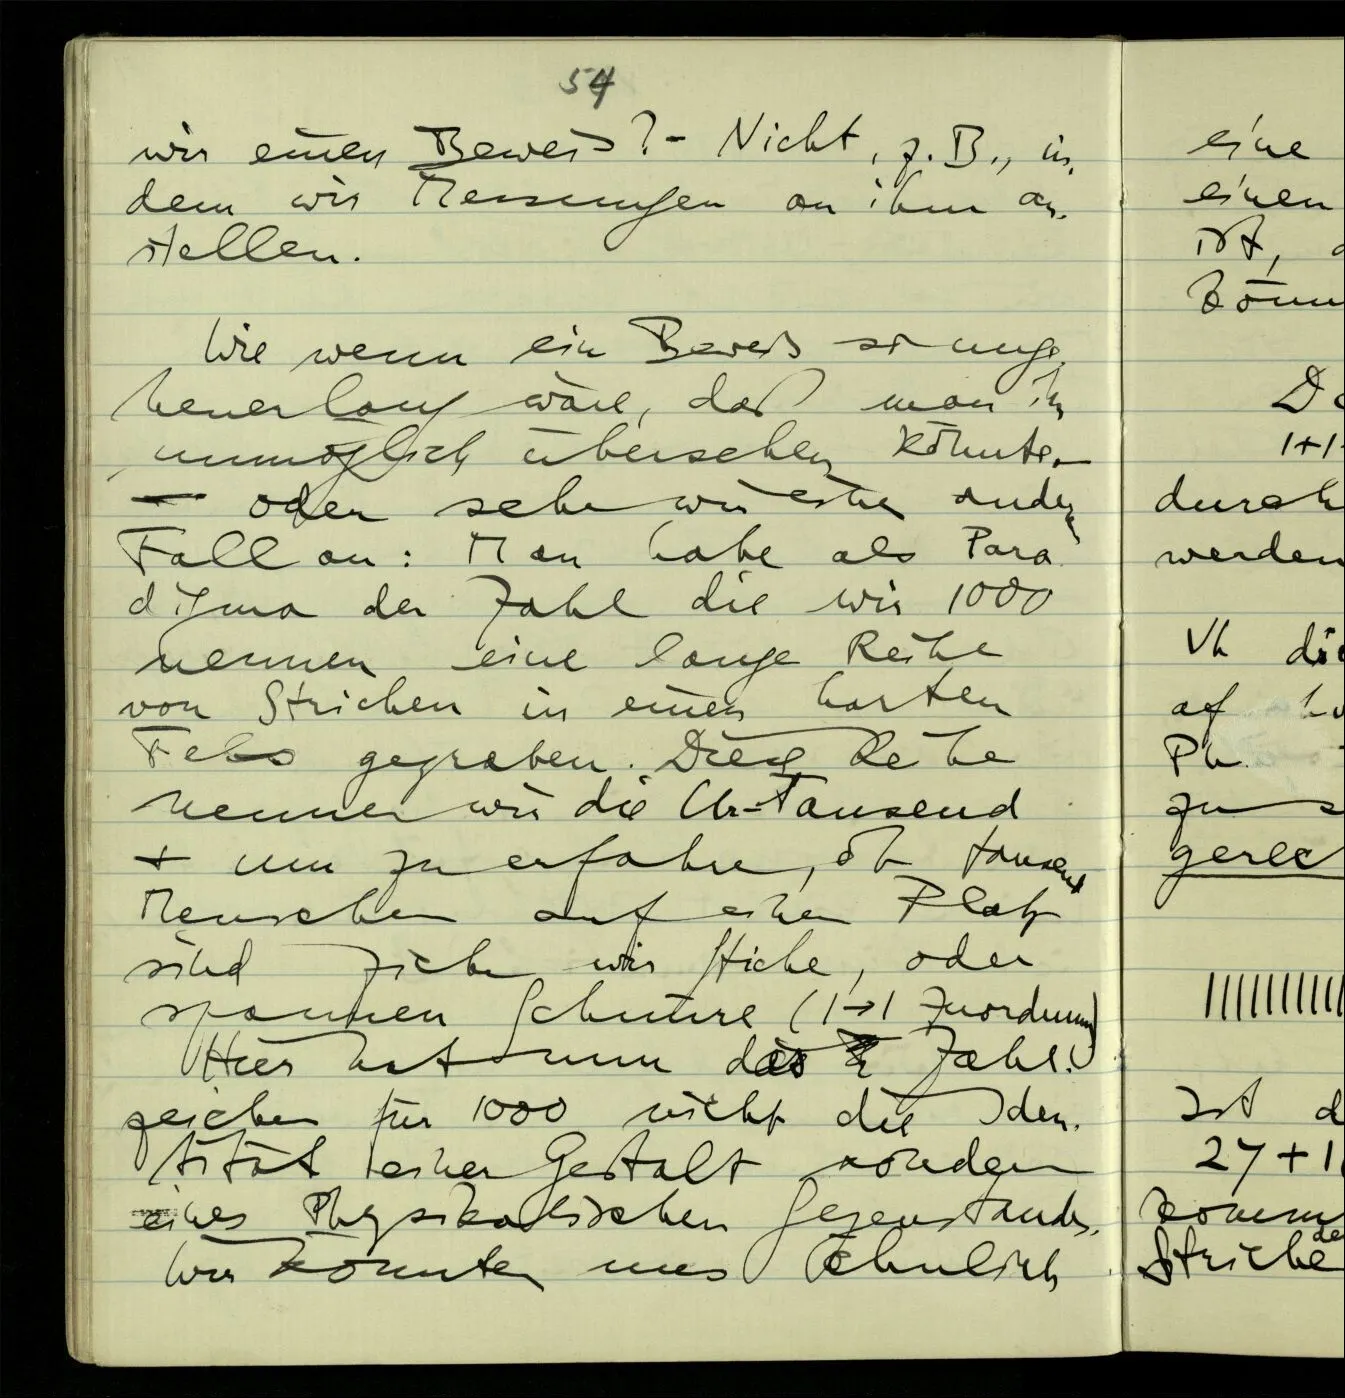 54
wir einen Beweis? – Nicht, z.B., in-
dem wir Messungen an ihm an-
stellen.
Wie wenn ein Beweis so unge-
heuer lang wäre, daß man ihn
unmöglich übersehen könnte. –
— oder sehen wir einen andern
Fall an: Man habe als Para-
digma der Zahl die wir 1000
nennen eine lange Reihe
von Strichen in einen harten
Fels gegraben. Diese Reihe
nennen wir die Ur-Tausend
+ um zu erfahren, ob tausend
Menschen auf einem Platz
sind ziehen wir Striche, oder
spannen Schnüre (1→1 Zuordnung)
Hier hat nun das Zahl-
zeichen für 1000 nicht die Iden-
tität einer Gestalt sondern
eines Physikalischen Gegenstandes.
Wir könnten uns ähnlich
eine
einen
ist,
könn
1+1
durch
werden
Vh die
af
Ph.
zu s
gerec
|||||||||||
Ist d
27+1
komm
Striche